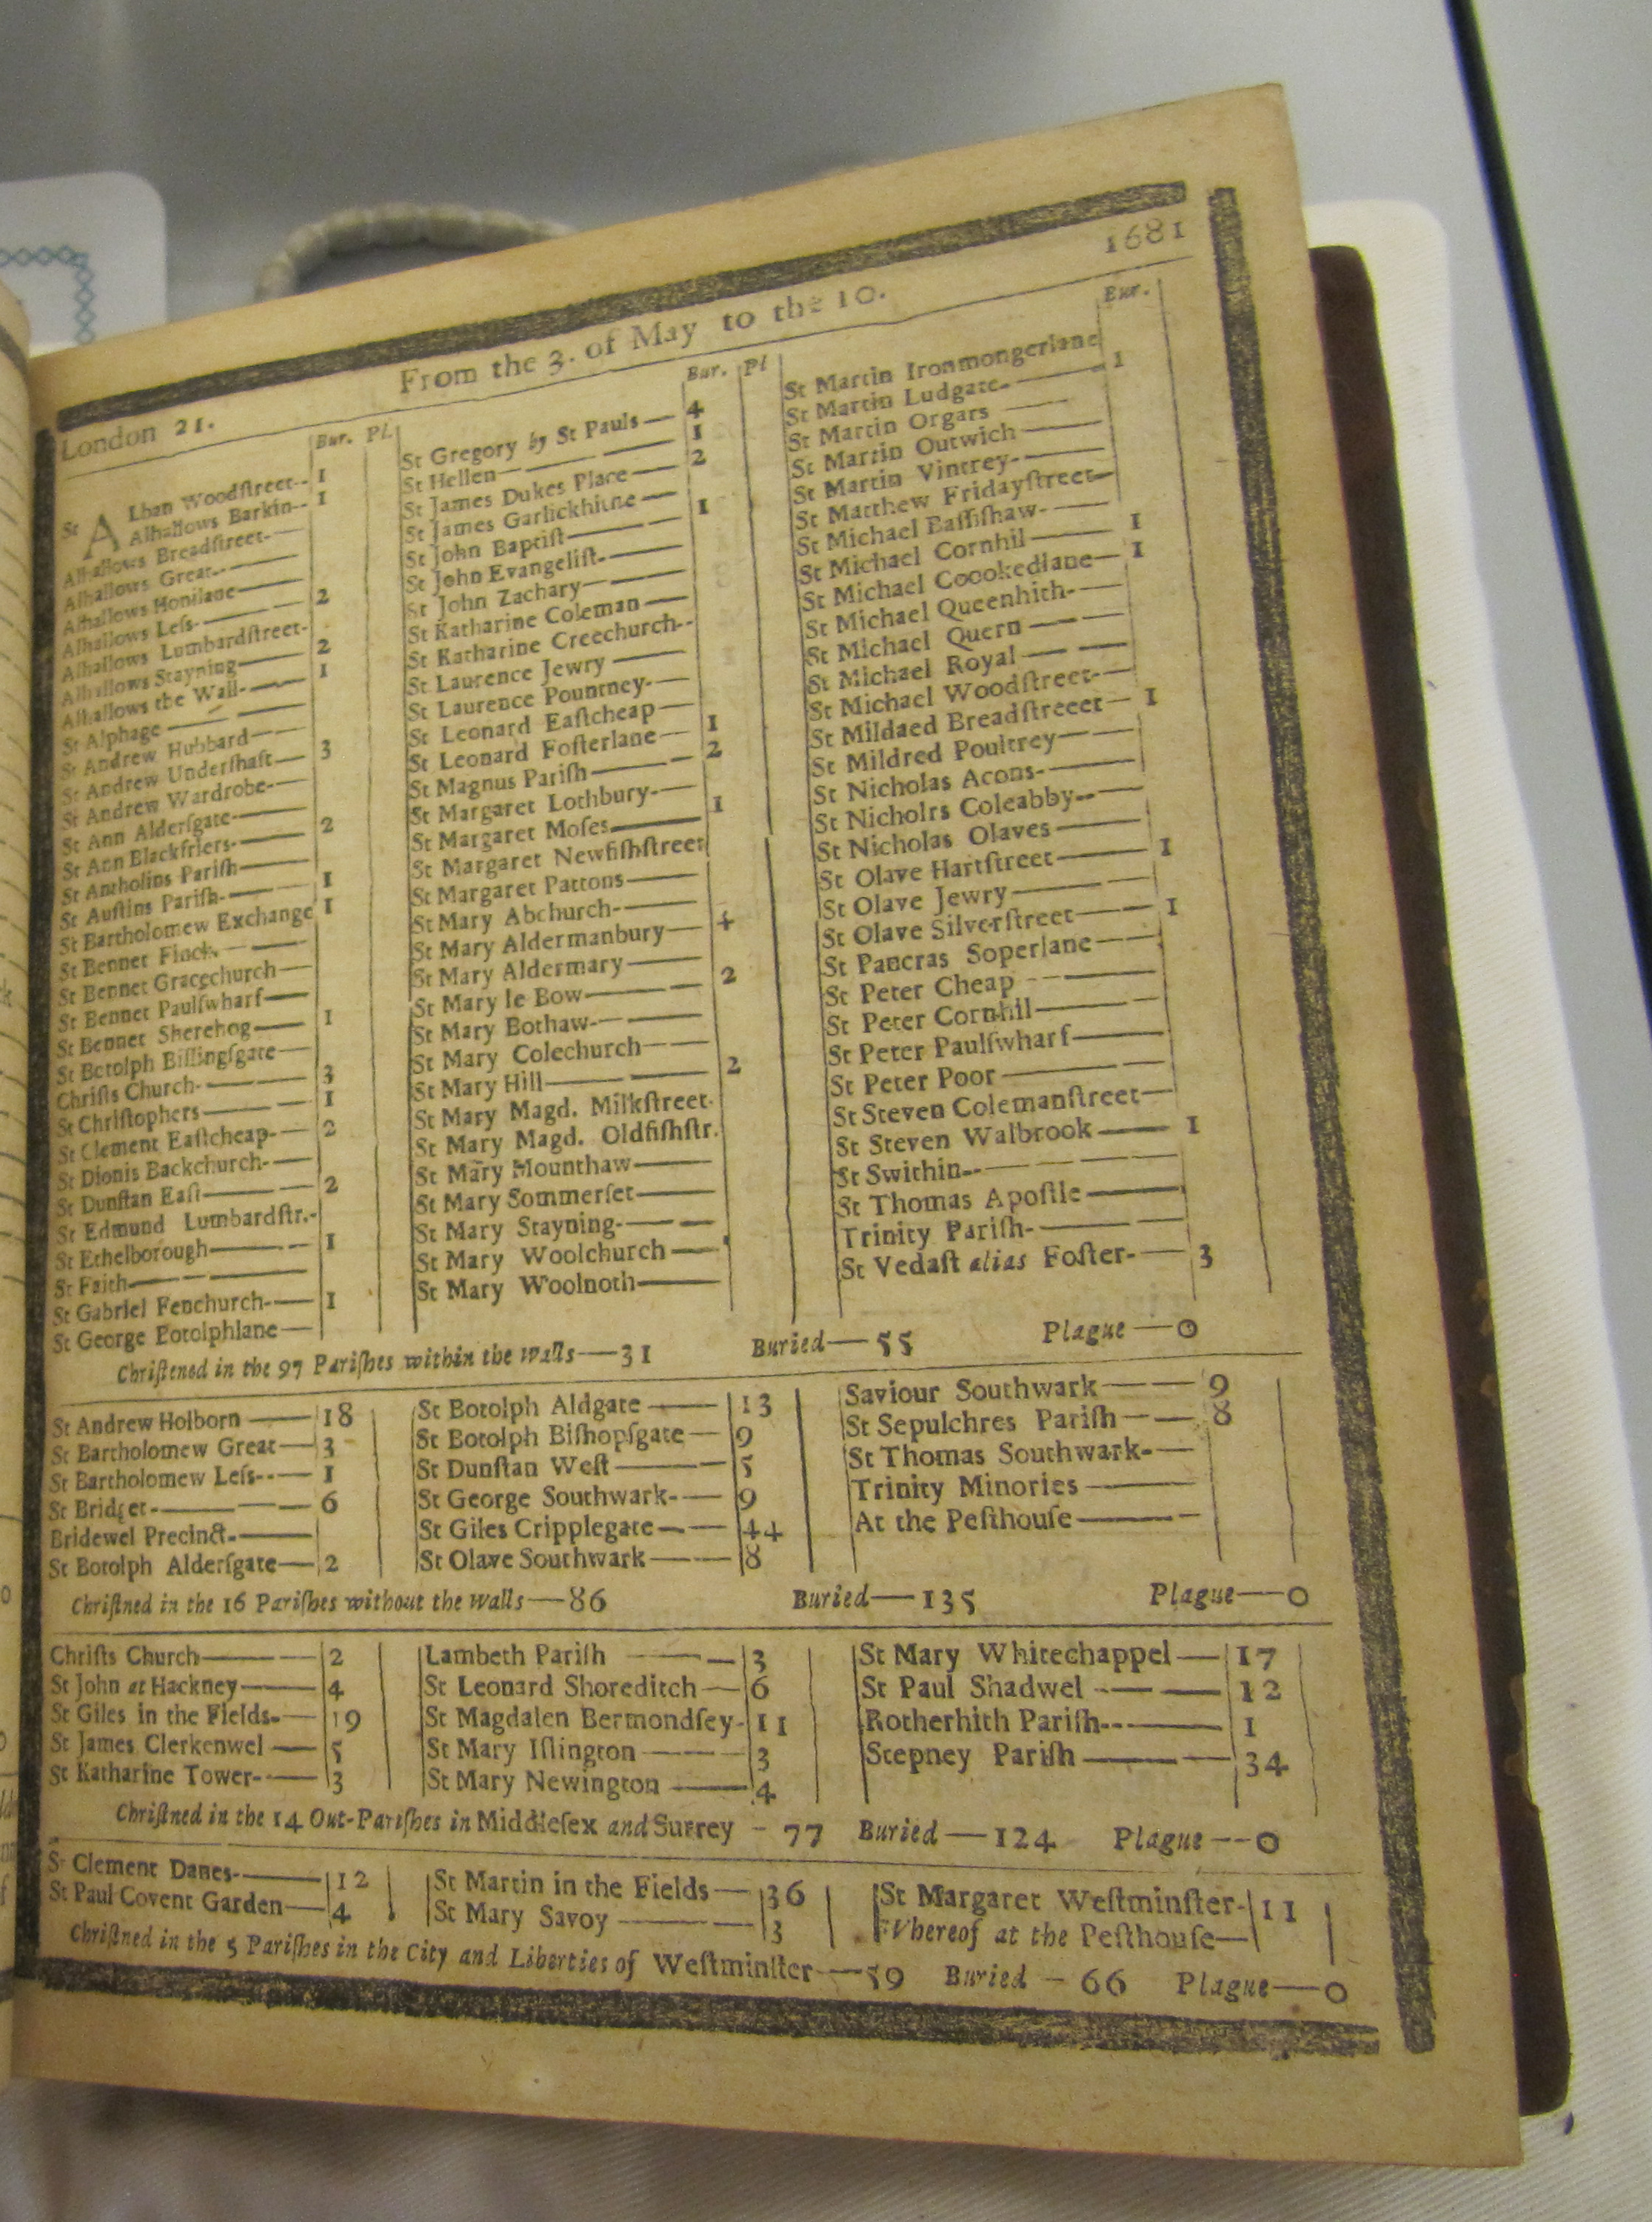 1681
From the 3. of May to the 10.
London 21.
Bur. Pl.
St ALban Woodſtreet-- 1
Alhallows Barkin-- 1
Alhallows Breadſtreet-
Alhallows Great--
Alhallows Honilane
Alhallows Leſs- 2
Alhallows Lumbardſtreet-
Alhallows Stayning 2
Alhallows the Wall- 1
St Alphage
St Andrew Hubbard
St Andrew Underſhaft 3
St Andrew Wardrobe-
St Ann Alderſgate
St Ann Blackfriers- 2
St Antholins Pariſh
St Auſtins Pariſh- 1
St Bartholomew Exchange 1
St Bennet Finck
St Bennet Gracechurch
St Bennet Paulſwharf
St Bennet Sherehog 1
St Botolph Billingſgate
Chriſts Church- 3
St Chriſtophers 1
St Clement Eaſtcheap- 2
St Dionis Backchurch-
St Dunſtan Eaſt 2
St Edmund Lumbardſtr.-
St Ethelborough 1
St Faith
St Gabriel Fenchurch- 1
St George Botolphlane
Bur. Pl
St Gregory by St Pauls — 4
St Hellen 1
St James Dukes Place — 2
St James Garlickhithe —
St John Baptiſt 1
St John Evangeliſt-
St John Zachary
St Katharine Coleman —
St Katharine Creechurch--
St Laurence Jewry —
St Laurence Pountney-
St Leonard Eaſtcheap — 1
St Leonard Foſterlane — 2
St Magnus Pariſh
St Margaret Lothbury- 1
St Margaret Moſes
St Margaret Newfiſhſtreet
St Margaret Pattons
St Mary Abchurch- 4
St Mary Aldermanbury
St Mary Aldermary 2
St Mary le Bow
St Mary Bothaw-
St Mary Colechurch
St Mary Hill 2
St Mary Magd. Milkſtreet-
St Mary Magd. Oldfiſhſtr.
St Mary Mounthaw
St Mary Sommerſet
St Mary Stayning-
St Mary Woolchurch
St Mary Woolnoth
Bur.
St Martin Ironmongerlane
St Martin Ludgate- 1
St Martin Orgars
St Martin Outwich
St Martin Vintrey-
St Matthew Fridayſtreet
St Michael Baſſiſhaw-
St Michael Cornhil 1
St Michael Coookedlane 1
St Michael Queenhith-
St Michael Quern
St Michael Royal
St Michael Woodſtreet-
St Mildaed Breadſtreeet 1
St Mildred Poultrey
St Nicholas Acons-
St Nicholrs Coleabby--
St Nicholas Olaves
St Olave Hartſtreet 1
St Olave Jewry
St Olave Silverſtreet 1
St Pancras Soperlane
St Peter Cheap
St Peter Cornhil
St Peter Paulſwharf
St Peter Poor
St Steven Colemanſtreet
St Steven Walbrook 1
St Swithin--
St Thomas Apoſtle
Trinity Pariſh-
St Vedaſt alias Foſter- 3
Chriſtened in the 97 Pariſhes within the walls — 31 Buried — 55 Plague — 0
St Andrew Holborn — 18
St Bartholomew Great — 3
St Bartholomew Leſs-- — 1
St Bridget- — 6
Bridewel Precinct-
St Botolph Alderſgate — 2
St Botolph Aldgate — 13
St Botolph Biſhopſgate — 9
St Dunſtan Weſt — 5
St George Southwark- — 9
St Giles Cripplegate — 44
St Olave Southwark — 8
Saviour Southwark — 9
St Sepulchres Pariſh — 8
St Thomas Southwark-
Trinity Minories
At the Peſthouſe
Chriſtned in the 16 Pariſhes without the walls — 86 Buried — 135 Plague — 0
Chriſts Church — 2
St John at Hackney — 4
St Giles in the Fields- — 19
St James Clerkenwel — 5
St Katharine Tower- — 3
Lambeth Pariſh — 3
St Leonard Shoreditch — 6
St Magdalen Bermondſey- 11
St Mary Iſlington — 3
St Mary Newington — 4
St Mary Whitechappel — 17
St Paul Shadwel — 12
Rotherhith Pariſh-- — 1
Stepney Pariſh — 34
Chriſtned in the 14 Out-Pariſhes in Middleſex and Surrey - 77 Buried — 124 Plague -- 0
St Clement Danes- — 12
St Paul Covent Garden — 4
St Martin in the Fields — 36
St Mary Savoy — 3
St Margaret Weſtminſter- 11
Whereof at the Peſthouſe—
Chriſtned in the 5 Pariſhes in the City and Liberties of Weſtminſter — 59 Buried - 66 Plague — 0